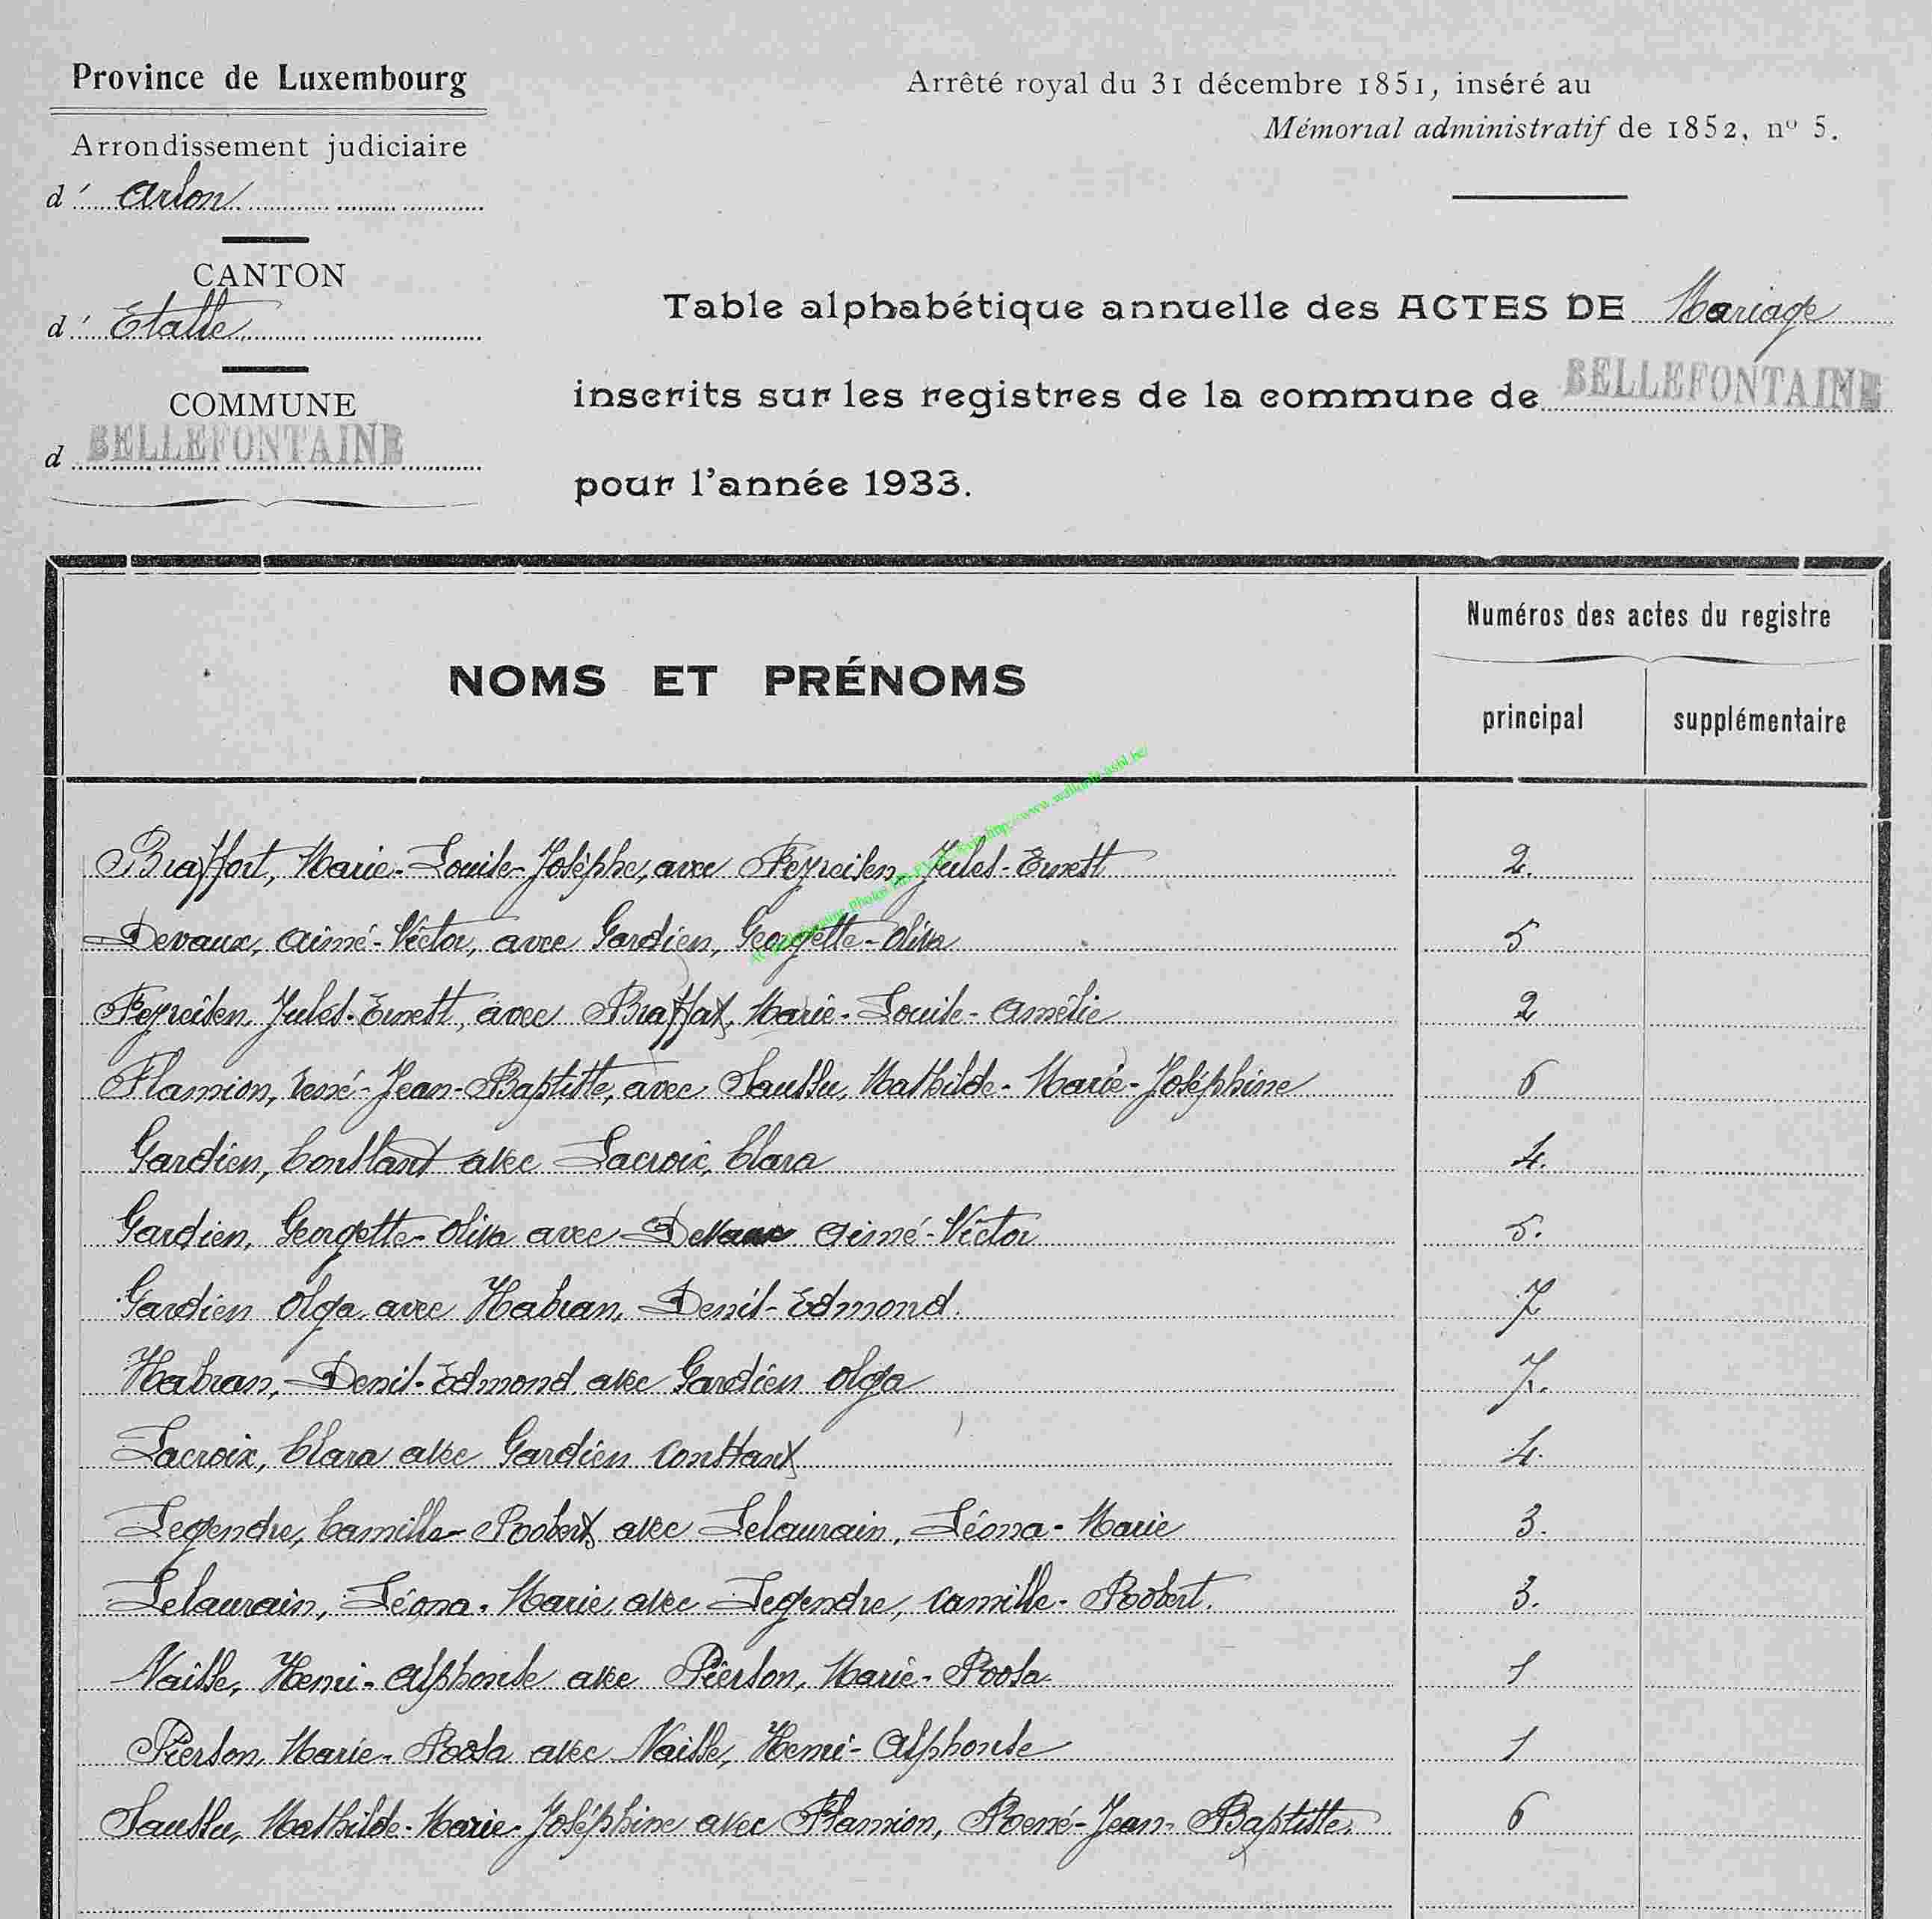 Province de Luxembourg
Arrondissement judiciaire
d' Arlon
CANTON
d' Etalle
COMMUNE
d BELLEFONTAINE
Arrêté royal du 31 décembre 1851, inséré au
Mémorial administratif de 1852, nº 5.
Table alphabétique annuelle des ACTES DE Mariage
inscrits sur les registres de la commune de BELLEFONTAINE
pour l'année 1933.
NOMS ET PRÉNOMS
Numéros des actes du registre
principal supplémentaire
Braffort, Marie-Louise-Josèphe, avec Feyreisen Jules-Ernest 2.
Devaux, Aimé-Victor, avec Gardien, Georgette-Oliva 5
Feyreisen, Jules-Ernest, avec Braffort, Marie-Louise-Amélie 2
Flamion, René-Jean-Baptiste, avec Saussu, Mathilde-Marie-Joséphine 6
Gardien, Constant avec Lacroix, Clara 4.
Gardien, Georgette-Oliva avec Devaux Aimé-Victor 5.
Gardien Olga avec Habran, Denis-Edmond. 7
Habran, Denis-Edmond avec Gardien Olga 7.
Lacroix, Clara avec Gardien Constant 4.
Legendre, Camille-Robert avec Lelaurain, Léona-Marie 3.
Lelaurain, Léona-Marie, avec Legendre, Camille-Robert. 3.
Naisse, Henri-Alphonse avec Pierson, Marie-Rosa 1
Pierson, Marie-Rosa avec Naisse, Henri-Alphonse 1
Saussu, Mathilde-Marie-Joséphine avec Flamion, René-Jean-Baptiste. 6